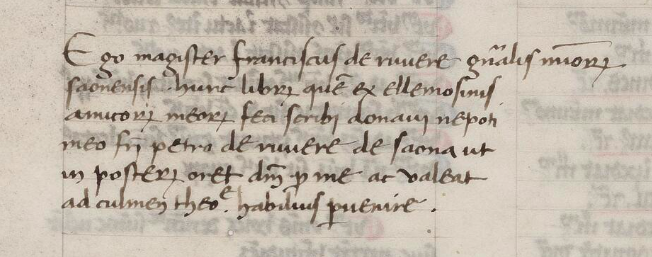 Ego magister franciscus de ruvere gn̄alis mīorꝝ
saonensis hunc librꝫ quē ex ellemosinis
amicorꝝ meorꝝ feci scribi donavi nepoti
meo fr̄i petro de ruvere de saona ut
in posterꝝ oret dm̄ ꝓ me ac valeat
ad culmen theoᵉ. habilius ꝑvenire.